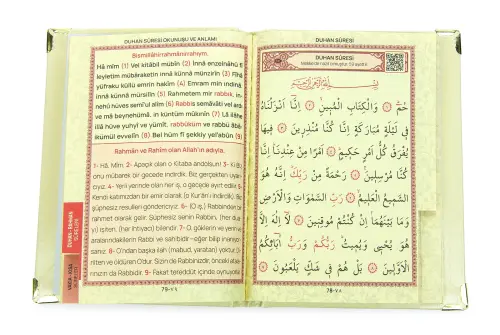 DUHAN SÛRESİ OKUNUŞU VE ANLAMI
Bismillâhirrahmânirrahıym.
Hâ mîm (1) Vel kitâbil mübîn (2) İnnâ enzelnâhü fî
leyletim mübâraketin innâ künnâ münzirîn (3) Fîhâ
yüfraku küllü emrin hakîm (4) Emram min indinâ
innâ künnâ mürsilîn (5) Rahmetem mir rabbik, in-
nehû hüves semî'ul alîm (6) Rabbis semâvâti vel ard
ve mâ beynehümâ, in küntüm mûkınîn (7) Lâ ilâhe
illâ hüve yuhyî ve yümît, rabbüküm ve rabbü âbâi
ikümül evvelîn (8) Bel hüm fî şekkiy yel'abûn (9)
Rahmân ve Rahîm olan Allah'ın adıyla.
1- Hâ, Mîm. 2- Apaçık olan o Kitaba andolsun! 3- Ki Biz
onu mübarek bir gecede indirdik. Biz gerçekten uyarı-
cıyız. 4- Yeni yerinde olan her iş, o gecede ayırt edilir. 5-
Kendi katımızdan bir emir olarak.
şüphesiz resulleri göndereniz. 6-
rahmet olarak gelir. Şüphesiz senin Rabbin,
işiten,
aralarındakilerin Rabbi
sanız. 8- O'ndan başka ilah (mabud, yaratan) yoktur
rilten ve öldüren O'dur. Sizin de Rabbinizdir, önceki ata-
nızın da Rabbidir. 9- Fakat tereddüt içinde oynuyorlar.
DUHAN SÛRESİ
DUHAN SÛRESİ
حٰمٓ ۞ وَالْكِتَابِ الْمُبٖينِ ۞ اِنَّٓا اَنْزَلْنَاهُ
فٖي لَيْلَةٍ مُبَارَكَةٍ اِنَّا كُنَّا مُنْذِرٖينَ ۞ فٖيهَا
يُفْرَقُ كُلُّ اَمْرٍ حَكٖيمٍ ۞ اَمْرًا مِنْ عِنْدِنَا اِنَّا
كُنَّا مُرْسِلٖينَ ۞ رَحْمَةً مِنْ رَبِّكَ اِنَّهُ هُوَ
السَّمٖيعُ الْعَلٖيمُ ۞ رَبِّ السَّمٰوَاتِ وَالْاَرْضِ
وَمَا بَيْنَهُمَا اِنْ كُنْتُمْ مُوقِنٖينَ ۞ لَٓا اِلٰهَ اِلَّا
هُوَ يُحْيٖي وَيُمٖيتُ رَبُّكُمْ وَرَبُّ اٰبَٓائِكُمُ
الْاَوَّلٖينَ ۞ بَلْ هُمْ فٖي شَكٍّ يَلْعَبُونَ ۞